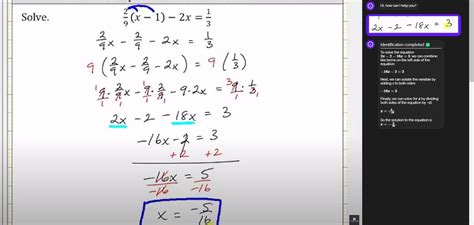 Solve.
2/9(x − 1) − 2x = 1/3
2/9x − 2/9 − 2x = 1/3
9(2/9x − 2/9 − 2x) = 9(1/3)
9/1 · 2/9x − 9/1 · 2/9 − 9 · 2x = 9/1 · 1/3
2x − 2 − 18x = 3
−16x − 2 = 3
+2 +2
−16x = 5
−16 −16
x = −5/16
Hi, how can I help you?
2x − 2 − 18x = 3
Identification completed
To solve the equation
2x - 2 - 18x = 3, we can combine
like terms on the left side of the
equation:
-16x - 2 = 3
Next, we can isolate the variable by
adding 2 to both sides:
-16x = 5
Finally, we can solve for x by dividing
both sides of the equation by -16:
So the solution to the equation is